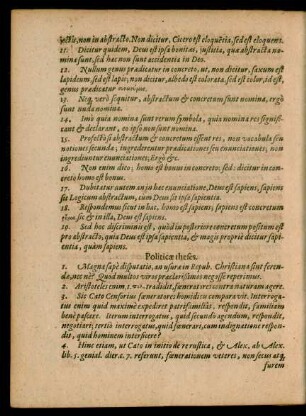 jectis, non in abstracto. Non dicitur, Cicero est eloquẽtia, sed est eloquens.
11. Dicitur quidem, Deus est ipsa bonitas, justitia, qua abstracta no
mina sunt, sed hac non sunt accidentia in Deo.
12. Nullum genus pradicatur in concreto, ut, non dicitur, saxum est
lapideum, sed est lapis; non dicitur, albedo est colorata, sed est color, id est,
genus pradicatur
13. Neq, verò sequitur, abstractum & concretum sunt nomina, ergò
sunt unda nomina.
14. Imò quia nomina sunt rerum symbola, quia nomina res signifi-
cant & declarant, eo ipso non sunt nomina.
15. Profectò si abstractum & concretum essent res, non vocabula seu
notiones secunda, ingrederentur pradicationes seu enunciationes, non
ingrediuntur enunciationes, Ergò &c.
16. Non enim dico; homo est bonus in concreto, sed: dicitur in con-
creto homo est bonus.
17. Dubitatur autem an in hac enunciatione, Deus est sapiens, sapiens
sit Logicum abstractum, cùm Deus sit ipsa sapientia.
18. Respondemus sicut in hac, homo est sapiens, sapiens est concretum
sic & in illa, Deus est sapiens.
19. Sed hoc discriminis est, quòd in posteriore concretum positum est
pro abstracto, quia Deus est ipsa sapientia, & magis propriè dicitur sapi-
entia, quàm sapiens.
Politicæ theses.
1. Magna sapè disputatio, an usura in Repub. Christiana sint feren-
da, nec ne? Quod multos viros praclarissimos negasse reperimus.
2. Aristoteles enim tradidit, fœnerari contra naturam agere.
3. Sic Cato Censorius fœneratores homicidis comparavit. Interro-
gatus enim quid maximè expediret patrifamiliâs, respondit, familiam
benè pascere. Iterum interrogatus, quid secundò agendum, respondit,
negotiari; tertiò interrogatus, quid fœnerari, cum indignatione respon-
dit, quid hominem interficere?
4. Hinc etiam, ut Cato in initio de re rustica, & Alex. ab Alex.
lib. 5. genial. dier. c. 7. referunt, fœnerationem veteres, non secus atq,
furem